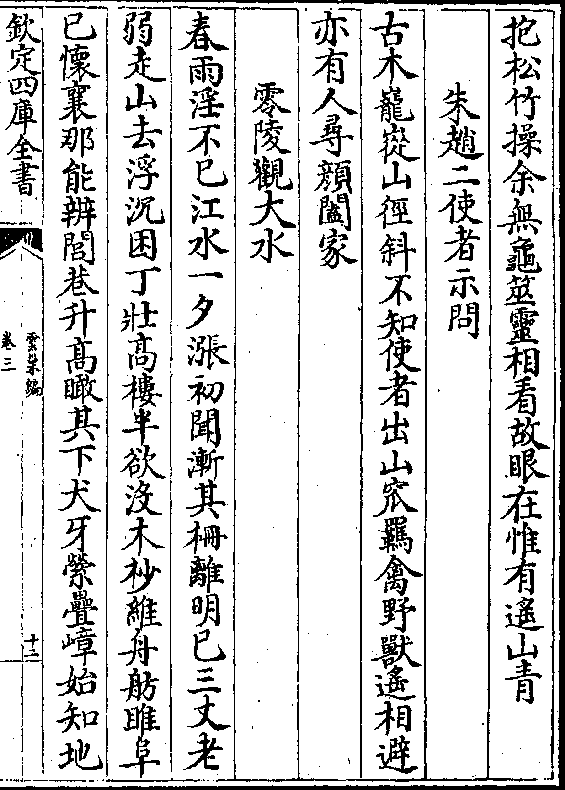 抱松竹操余無龜筮靈相看故眼在惟有遙山青
朱趙二使者示問
古木巃嵸山徑斜不知使者出山羈禽野獸遙相避
亦有人尋顏闔家
零陵觀大水
春雨淫不已江水一夕漲初聞漸其柵離明已三丈老
弱走山去浮沉困丁壯高樓半欲沒木杪維舟舫雎阜
已懷襄那能辨閭巷升高瞰其下犬牙縈疊嶂始知地
欽定四庫全書
雲巢編
卷三
十二